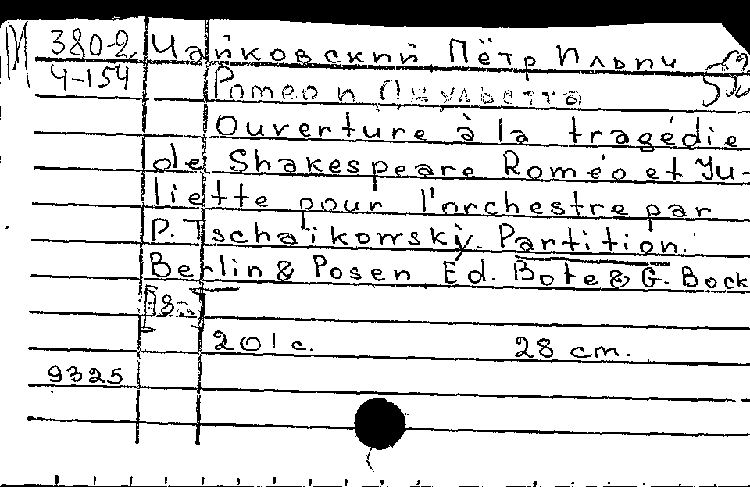 М 380-2 Чайковский, Пётр Ильич
Ч-154 Ромео и Джульетта
Ouverture à la tragédie
de Shakespeare Roméo et Ju-
liette pour l'orchestre par
P. Tschaïkowsky. Partition.
Berlin & Posen Ed. Bote & G. Bock
201 с.    28 cm.
9325